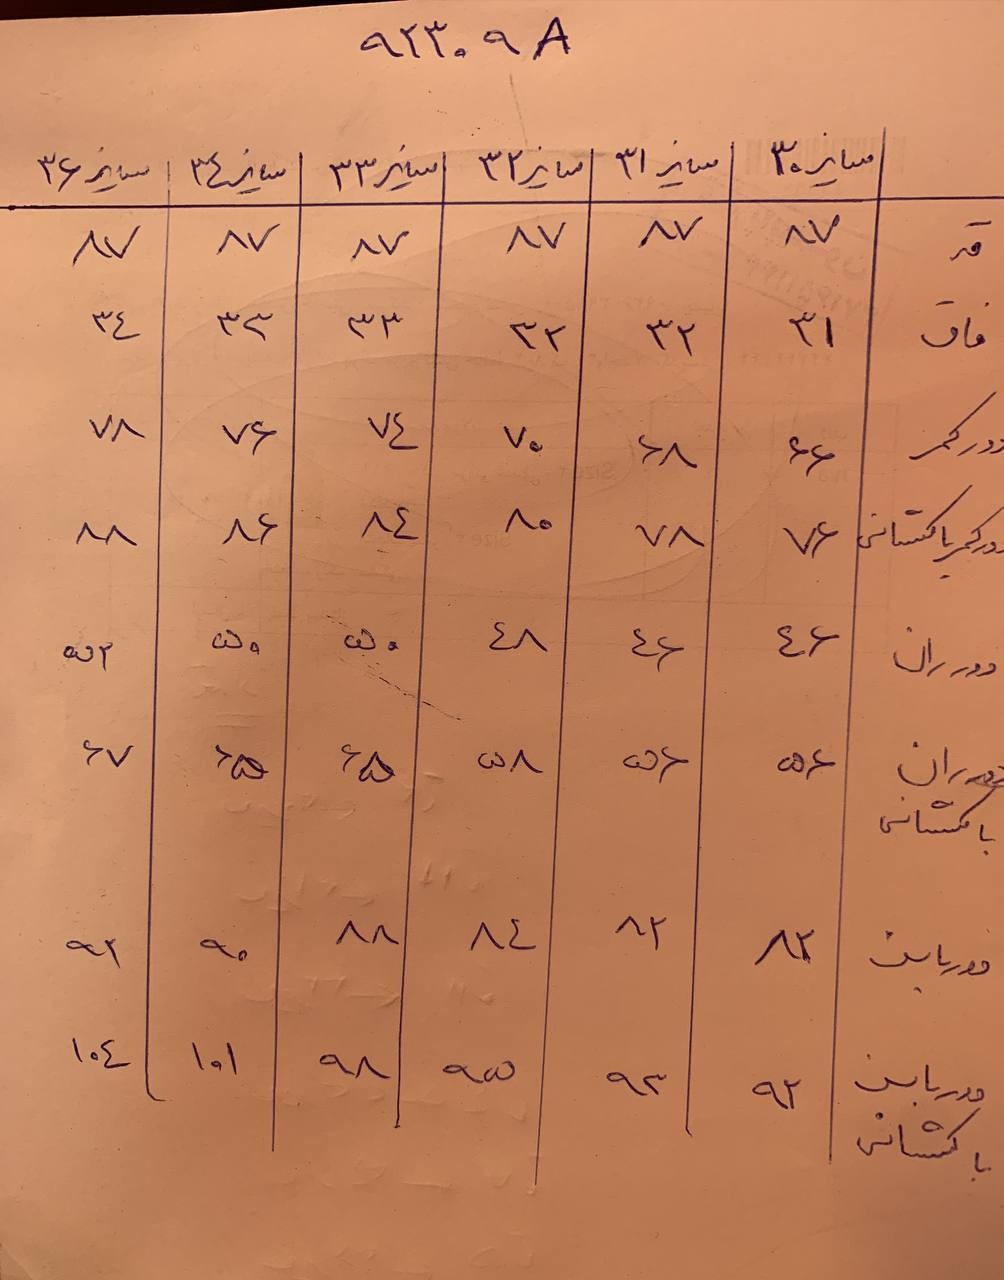 ۹۲۳۰۹A
سایز ۳۰ سایز ۳۱ سایز ۳۲ سایز ۳۳ سایز ۳۴ سایز ۳۶
قد ۸۷ ۸۷ ۸۷ ۸۷ ۸۷ ۸۷
فاق ۳۱ ۳۲ ۳۲ ۳۳ ۳۳ ۳۴
دور کمر ۶۶ ۶۸ ۷۰ ۷۴ ۷۶ ۷۸
دور کمر با کشسانی ۷۶ ۷۸ ۸۰ ۸۴ ۸۶ ۸۸
دور ران ۴۶ ۴۶ ۴۸ ۵۰ ۵۰ ۵۲
دور ران ۵۶ ۵۶ ۵۸ ۶۵ ۶۵ ۶۷
با کشسانی
دور باسن ۸۲ ۸۲ ۸۴ ۸۸ ۹۰ ۹۲
دور باسن ۹۲ ۹۳ ۹۵ ۹۸ ۱۰۱ ۱۰۴
با کشسانی